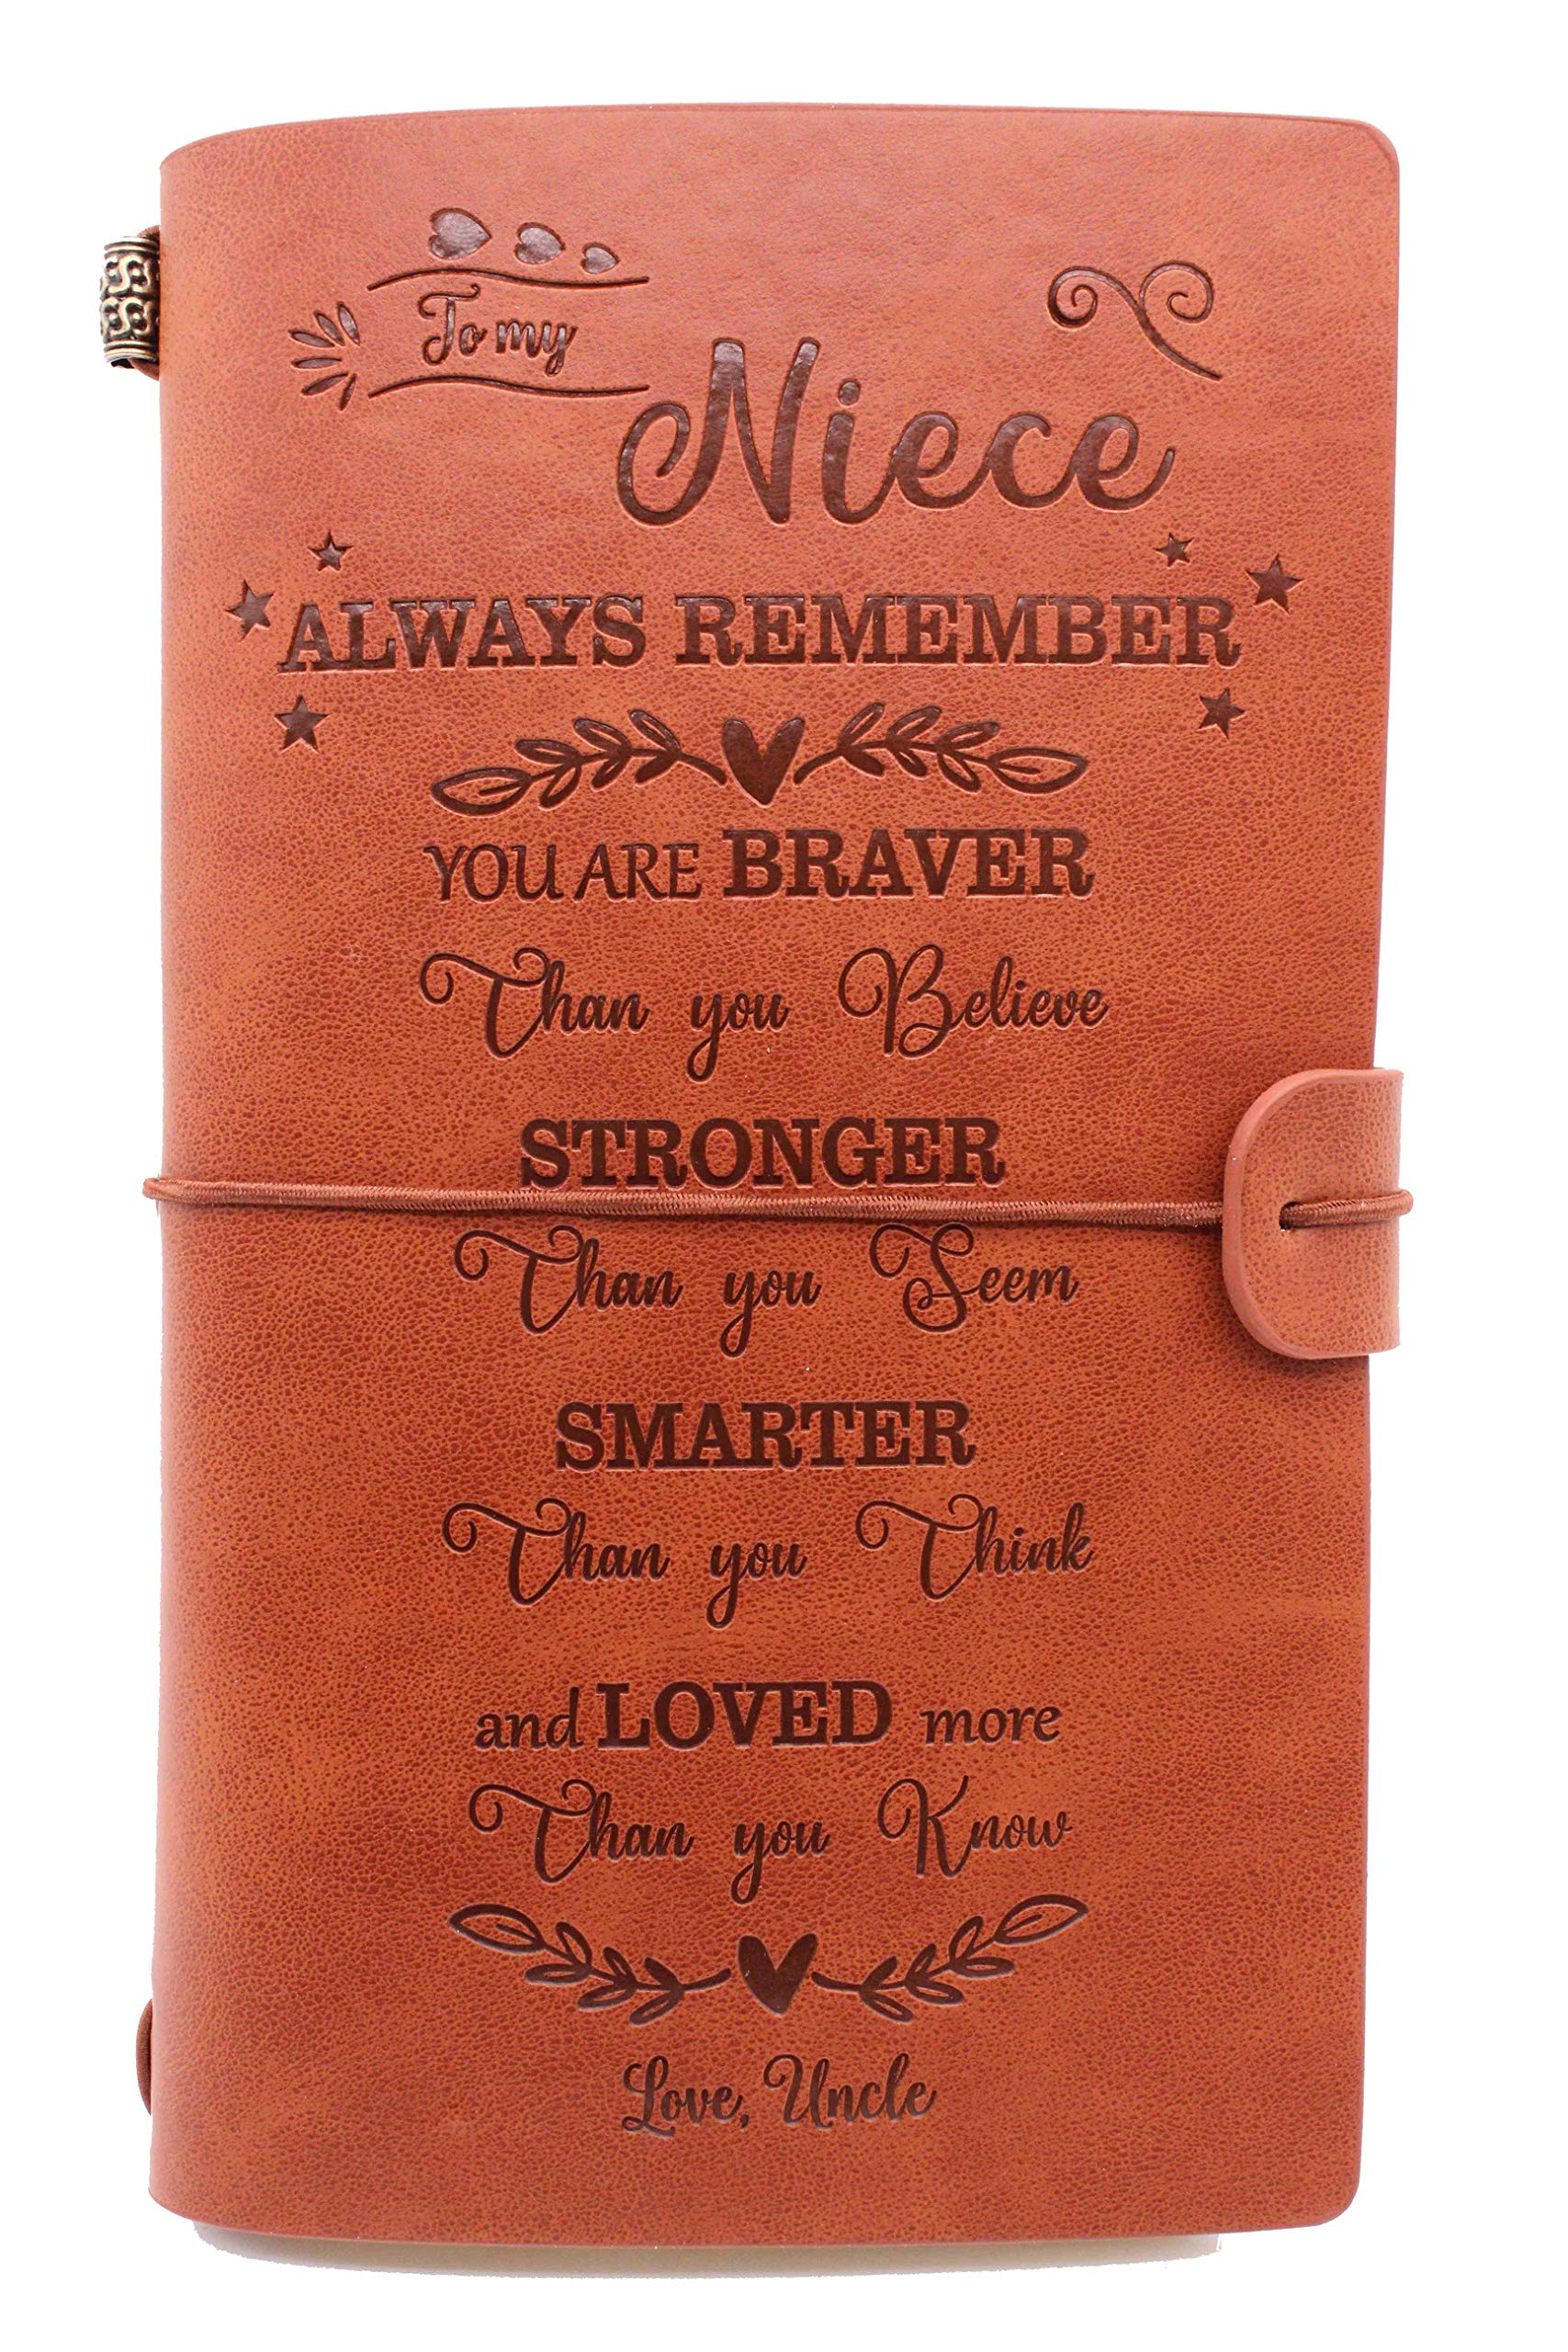 To my
Niece
ALWAYS REMEMBER
YOU ARE BRAVER
Than you Believe
STRONGER
Than you Seem
SMARTER
Than you Think
and LOVED more
Than you Know
Love, Uncle